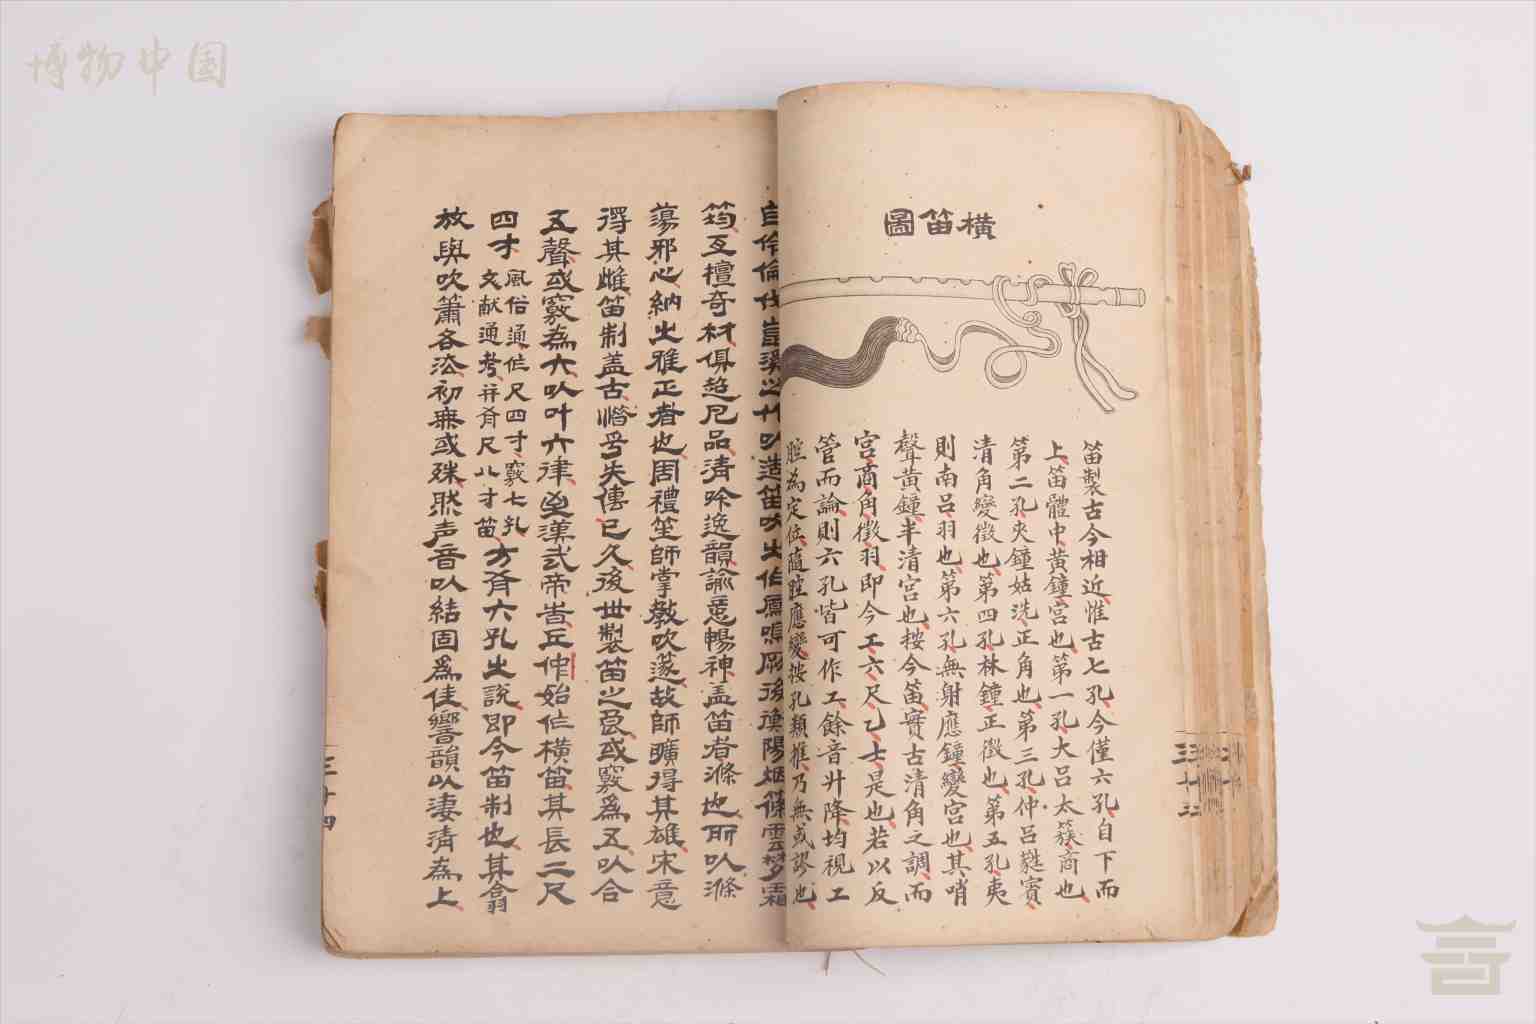 博物中国
横笛圖
笛製古今相近惟古七孔今僅六孔自下而
上笛體中黄鐘宮也第一孔大呂太簇商也
第二孔夾鐘姑洗正角也第三孔仲呂蕤賓
清角變徵也第四孔林鐘正徵也第五孔夷
則南呂羽也第六孔無射應鐘變宮也其哨
聲黄鐘半清宮也按今笛實古清角之調而
宮商角徵羽即今工六尺乙士是也若以反
管而論則六孔皆可作工餘音升降均視工
腔為定位隨腔應變按孔類推乃無或謬也
三十三
自伶倫伐嶰溪之竹㠯造笛吹出鳳鳴厥後衡陽烟篠雲夢霜
筠互檀奇材俱超凡品清吟逸韻諭意暢神盖笛者滌也所㠯滌
蕩邪心納之雅正者也周禮笙師掌教吹篴故師曠得其雄宋意
得其雌笛制盖古惜乎失傳已久後世製笛之長或竅爲五㠯合
五聲或竅為六㠯叶六律漢武帝旹丘仲始作橫笛其長二尺
四寸風俗通作尺四寸竅七孔文献通考并有尺八寸笛方有六孔之說即今笛制也其翕
放與吹簫各法初無或殊然声音㠯結固爲佳響韻以凄清為上
三十四